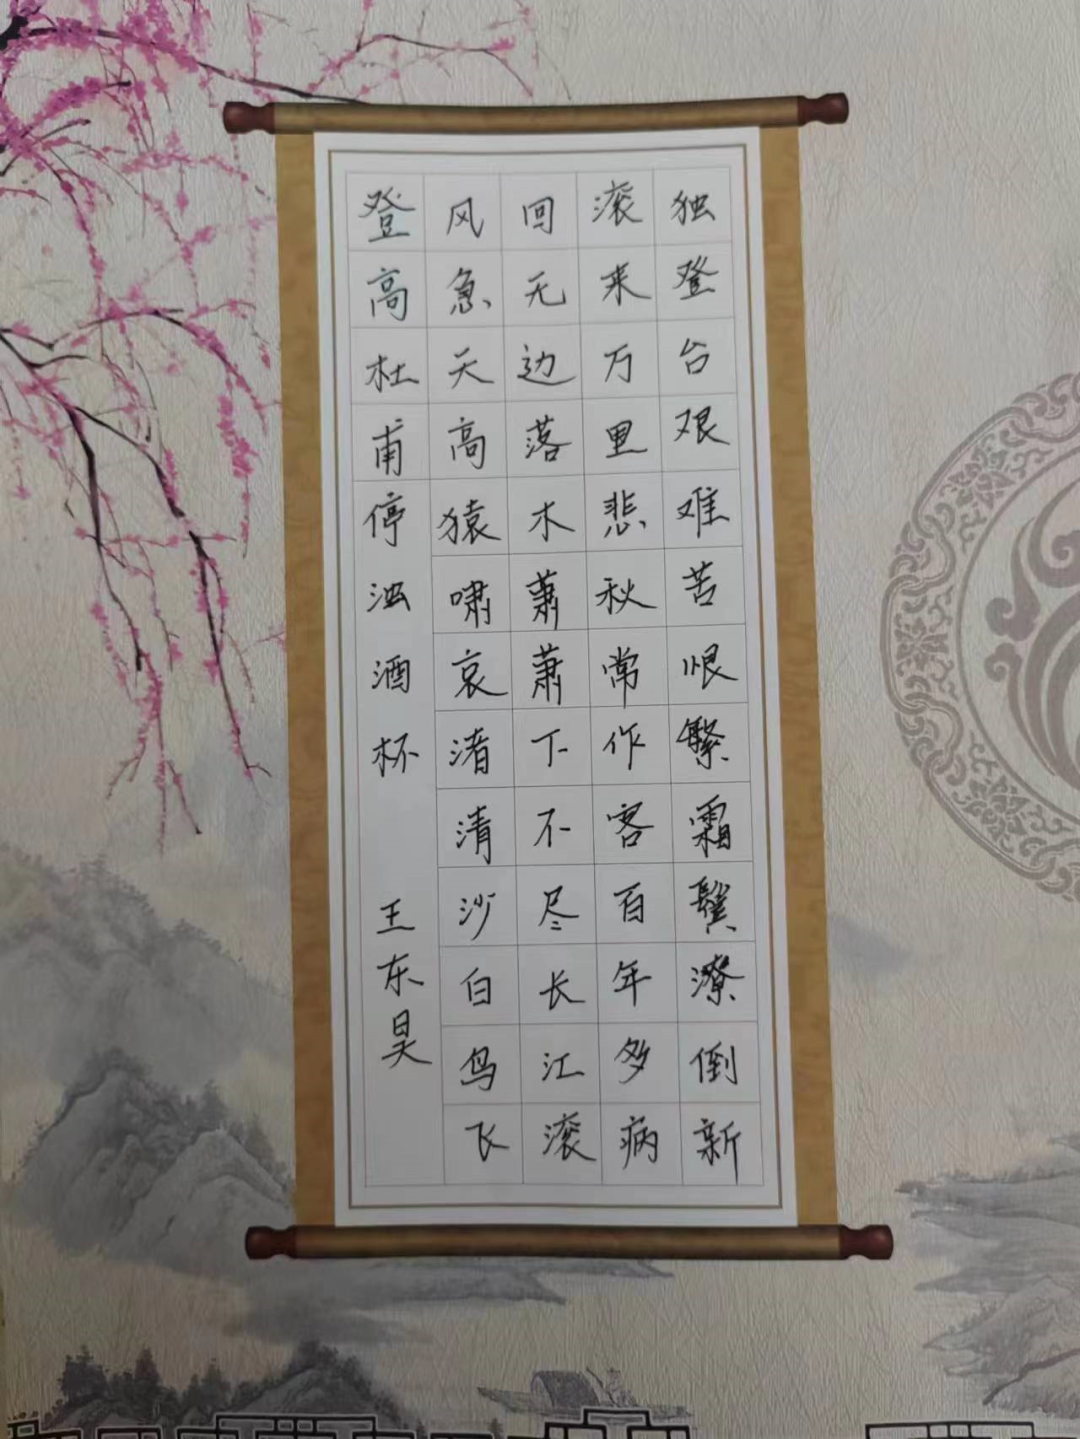 登高杜甫停浊酒杯 王东昊
风急天高猿啸哀渚清沙白鸟飞
回无边落木萧萧下不尽长江滚
滚来万里悲秋常作客百年多病
独登台艰难苦恨繁霜鬓潦倒新